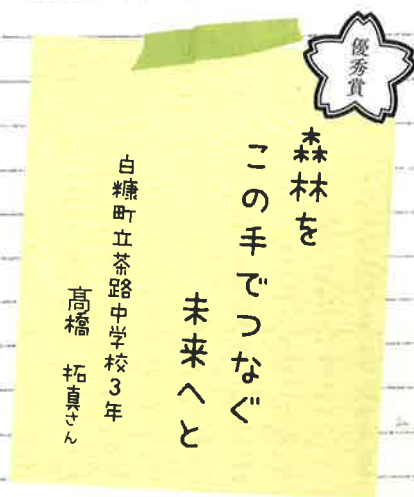 優秀賞
森林を
この手でつなぐ
未来へと
白糠町立茶路中学校3年
髙橋 拓真さん